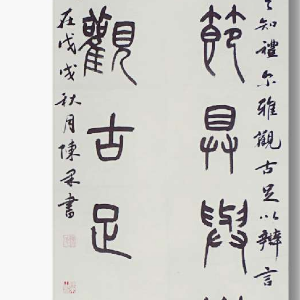 知禮尔雅觀古足以辯言
節具與
觀古足
在戊戌秋月陳書